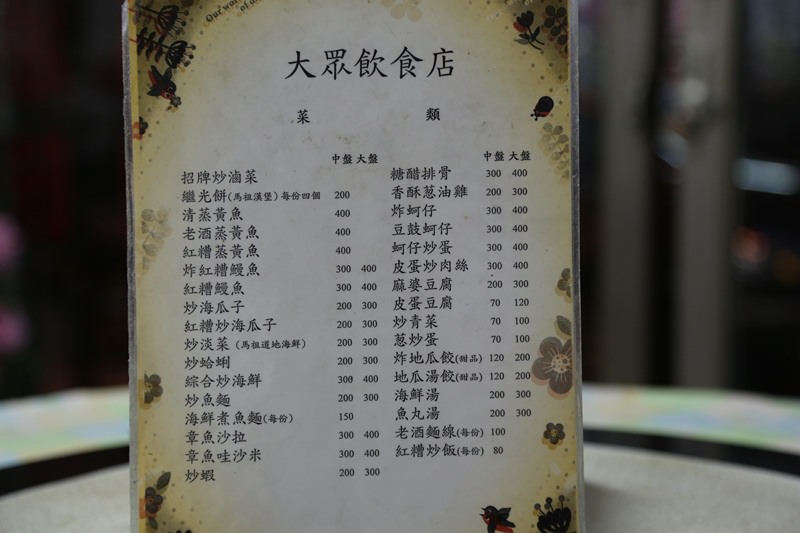 Our wor
of a
大眾飲食店
菜 類
中盤 大盤
招牌炒滷菜
繼光餅(馬祖漢堡)每份四個 200
清蒸黃魚 400
老酒蒸黃魚 400
紅糟蒸黃魚 400
炸紅糟鰻魚 300 400
紅糟鰻魚 300 400
炒海瓜子 200 300
紅糟炒海瓜子 200 300
炒淡菜(馬祖道地海鮮) 200 300
炒蛤蜊 200 300
綜合炒海鮮 300 400
炒魚麵 200 300
海鮮煮魚麵(每份) 150
章魚沙拉 300 400
章魚哇沙米 300 400
炒蝦 200 300
中盤 大盤
糖醋排骨 300 400
香酥蔥油雞 200 300
炸蚵仔 300 400
豆鼓蚵仔 300 400
蚵仔炒蛋 300 400
皮蛋炒肉絲 300 400
麻婆豆腐 200 300
皮蛋豆腐 70 120
炒青菜 70 100
蔥炒蛋 70 100
炸地瓜餃(甜品) 120 200
地瓜湯餃(甜品) 120 200
海鮮湯 200 300
魚丸湯 200 300
老酒麵線(每份) 100
紅糟炒飯(每份) 80